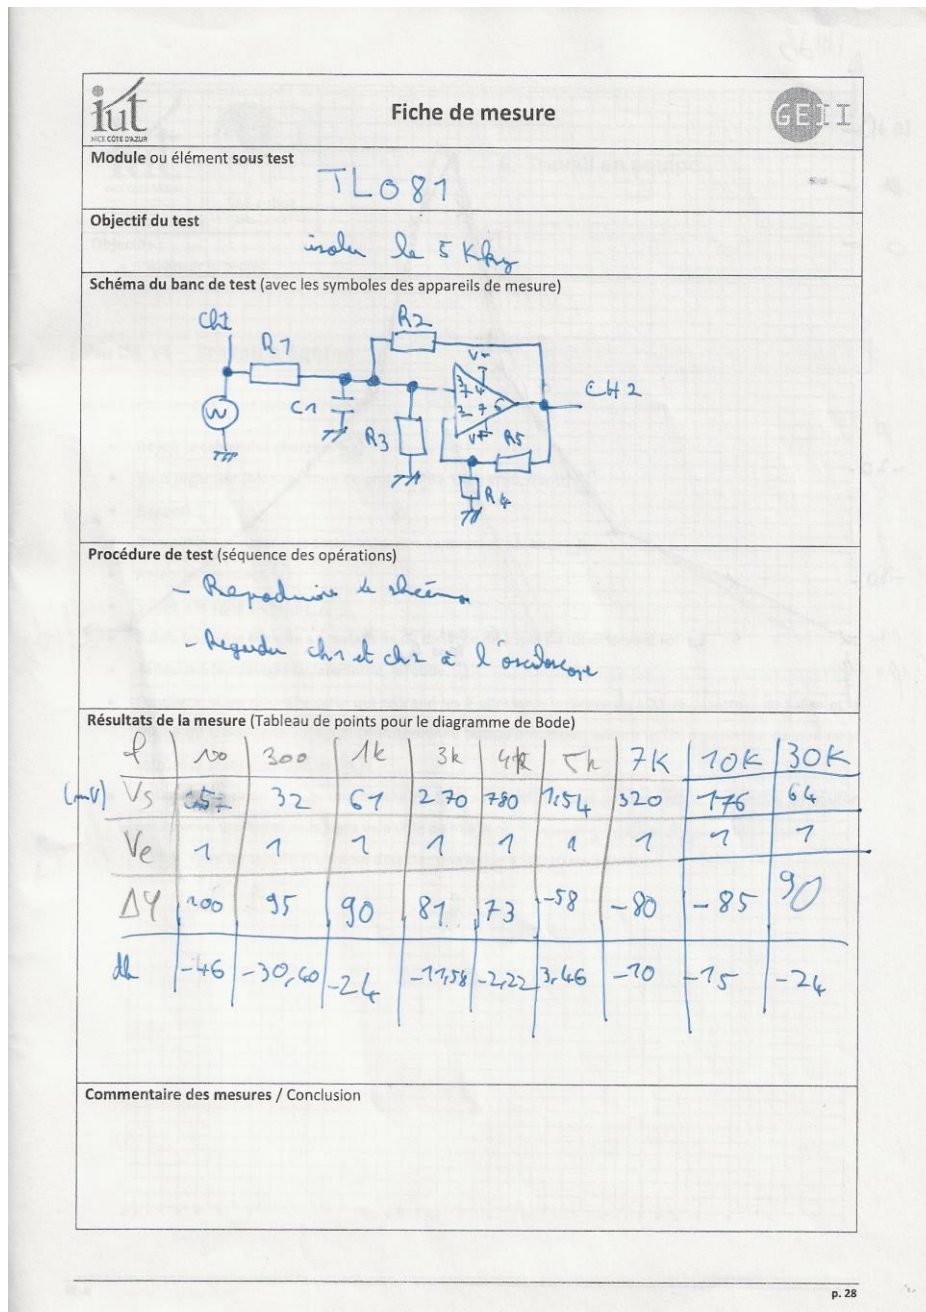 iut
NICE CÔTE D'AZUR
Fiche de mesure
GEII
Module ou élément sous test
TL081
Objectif du test
isoler le 5 Khz
Schéma du banc de test (avec les symboles des appareils de mesure)
Ch1
R1
R2
C1
R3
V-
3 4
2 7 6
V+
CH2
R5
R4
Procédure de test (séquence des opérations)
- Reproduire le shéma
- Regarder ch1 et ch2 à l'osciloscope
Résultats de la mesure (Tableau de points pour le diagramme de Bode)
f 100 300 1k 3k 4k 5k 7K 10K 30K
(mV) Vs 5 32 61 270 780 1,54 320 176 64
Ve 1 1 1 1 1 1 1 1 1
Δφ 100 95 90 81 73 -58 -80 -85 90
db -46 -30,40 -24 -11,58 -2,22 3,46 -10 -15 -24
Commentaire des mesures / Conclusion
p. 28